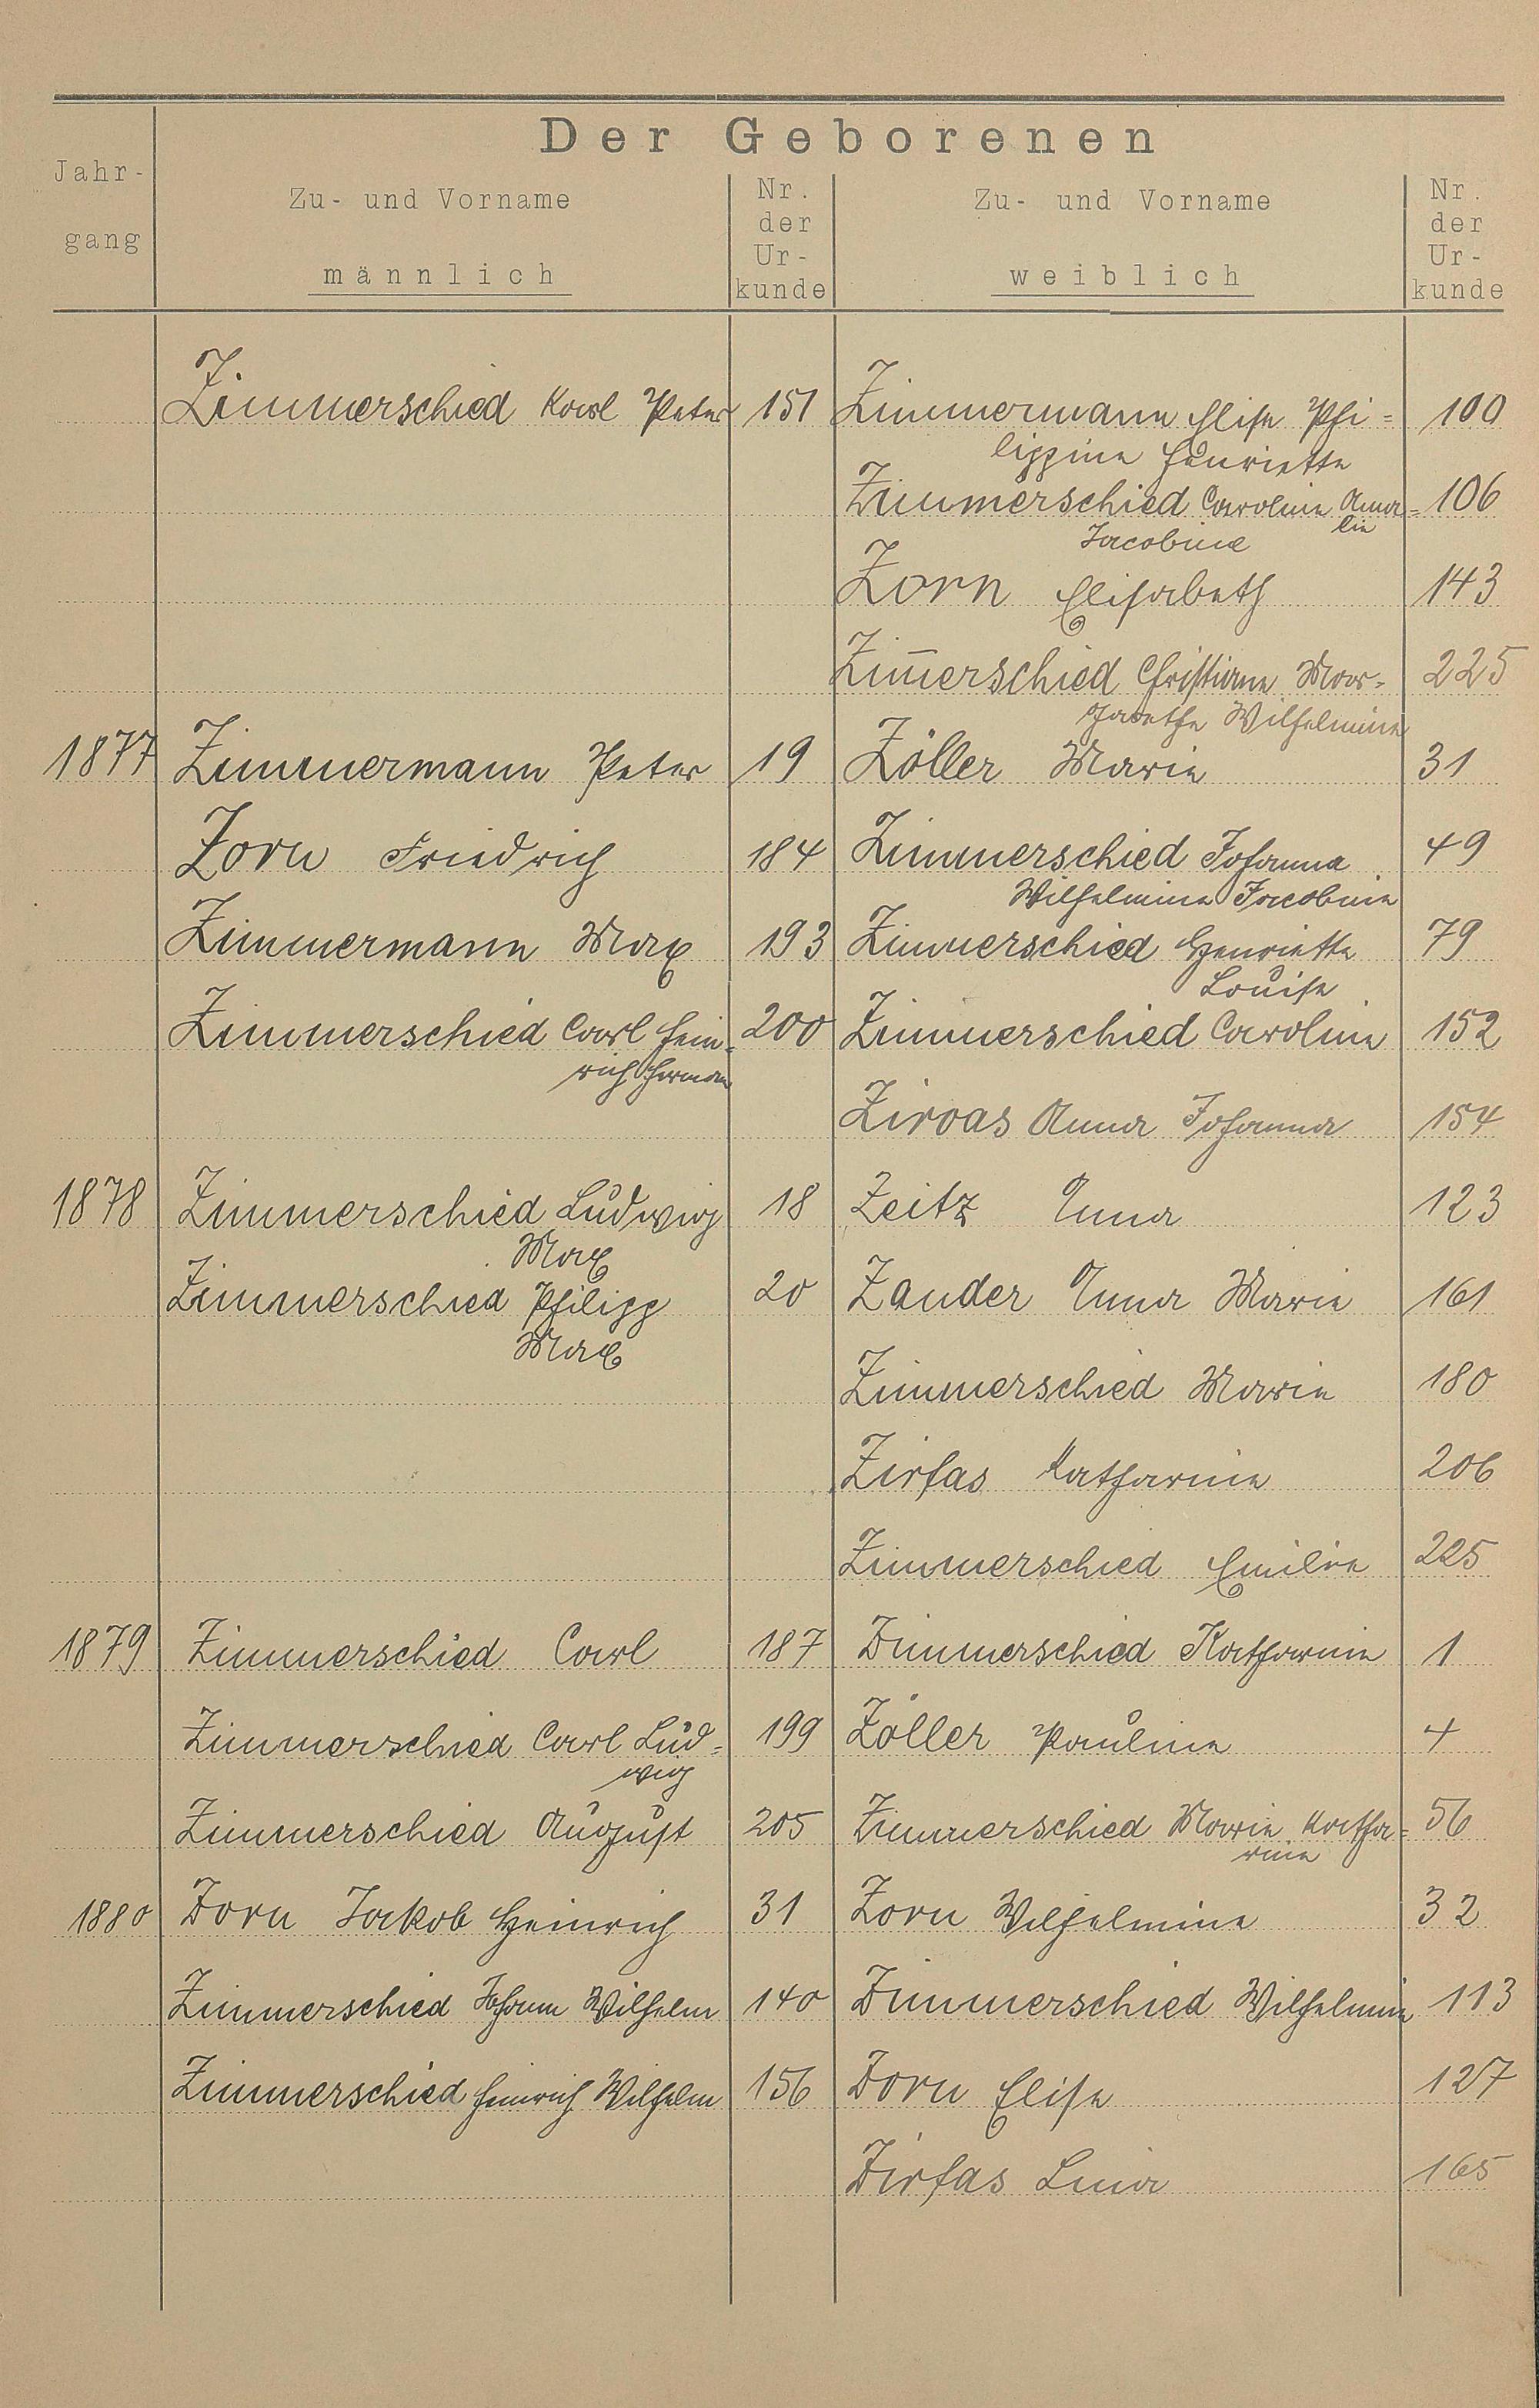 Der Geborenen
Jahr-
gang
Zu- und Vorname
männlich
Nr.
der
Ur-
kunde
Zu- und Vorname
weiblich
Nr.
der
Ur-
kunde
Zimmerschied Karl Peter 151 Zimmermann Elise Phi= 100
lippine Henriette
Zimmerschied Caroline Ama= 106
lie
Jacobine
Zorn Elisabeth 143
Zim̅erschied Christiane Mar= 225
garethe Wilhelmine
1877 Zimmermann Peter 19 Zöller Marie 31
Zorn Friedrich 184 Zimmerschied Johanna 49
Wilhelmine Jacobine
Zimmermann Max 193 Zimmerschied Henriette 79
Louise
Zimmerschied Carl Hein= 200 Zimmerschied Caroline 152
rich Herman
Zirvas Anna Johanna 154
1878 Zimmerschied Ludwig 18 Zeitz Anna 123
Max
Zimmerschied Philipp 20 Zander Anna Marie 161
Max
Zimmerschied Marie 180
Zirfas Katharine 206
Zimmerschied Emilie 225
1879 Zimmerschied Carl 187 Zimmerschied Katharine 1
Zimmerschied Carl Lud= 199 Zöller Pauline 4
wig
Zimmerschied August 205 Zimmerschied Marie Katha= 56
rine
1880 Zorn Jakob Heinrich 31 Zorn Wilhelmine 32
Zimmerschied Johann Wilhelm 140 Zimmerschied Wilhelmine 113
Zimmerschied Heinrich Wilhelm 156 Zorn Elise 127
Zirfas Lina 165